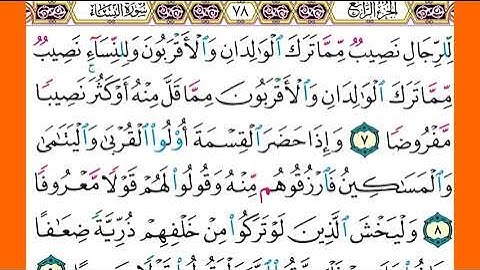 الجزء الرابع ٧٨ سورة النساء
لِّلرِّجَالِ نَصِيبٌ مِّمَّا تَرَكَ ٱلْوَٰلِدَانِ وَٱلْأَقْرَبُونَ وَلِلنِّسَآءِ نَصِيبٌ
مِّمَّا تَرَكَ ٱلْوَٰلِدَانِ وَٱلْأَقْرَبُونَ مِمَّا قَلَّ مِنْهُ أَوْ كَثُرَ ۚ نَصِيبًا
مَّفْرُوضًا ٧ وَإِذَا حَضَرَ ٱلْقِسْمَةَ أُو۟لُوا۟ ٱلْقُرْبَىٰ وَٱلْيَتَٰمَىٰ
وَٱلْمَسَٰكِينُ فَٱرْزُقُوهُم مِّنْهُ وَقُولُوا۟ لَهُمْ قَوْلًا مَّعْرُوفًا
٨ وَلْيَخْشَ ٱلَّذِينَ لَوْ تَرَكُوا۟ مِنْ خَلْفِهِمْ ذُرِّيَّةً ضِعَٰفًا